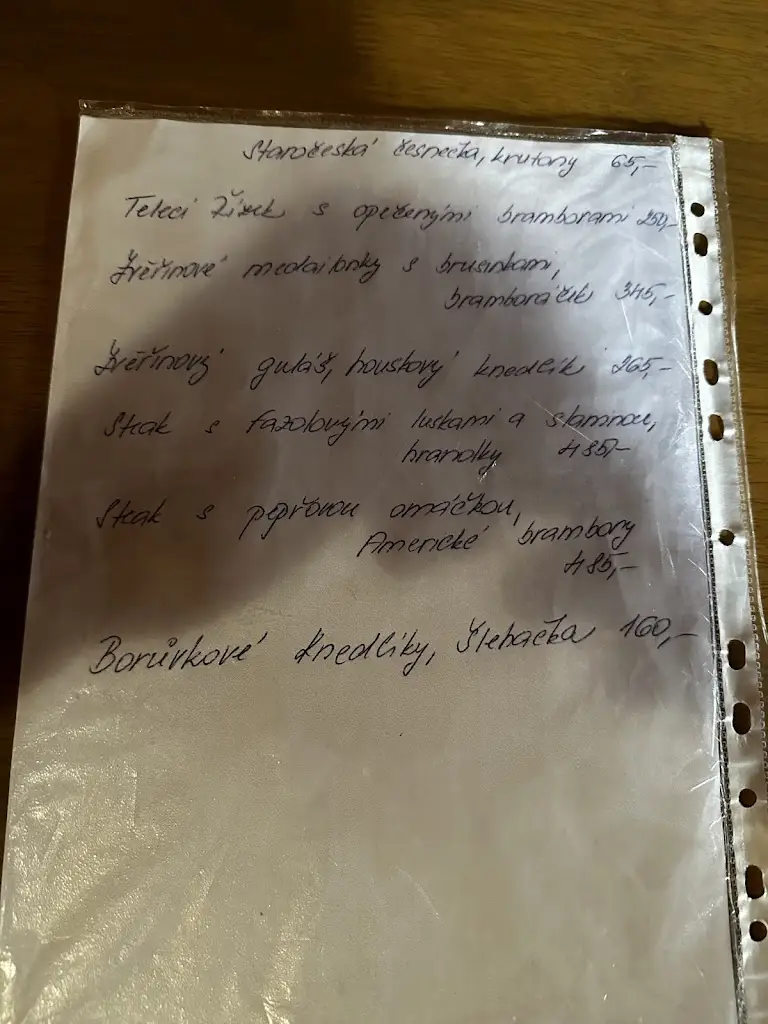 Staročeská česnečka, krutony 65,-
Telecí Žízek s opečenými bramborami 250,-
Zvěřinové medailonky s brusinkami,
bramboráček 345,-
Zvěřinový guláš, houskový knedlík 265,-
Steak s fazolovými luskami a slaninou,
hranolky 485,-
Steak s pepřovou omáčkou,
Americké brambory
485,-
Borůvkové knedlíky, šlehačka 160,-